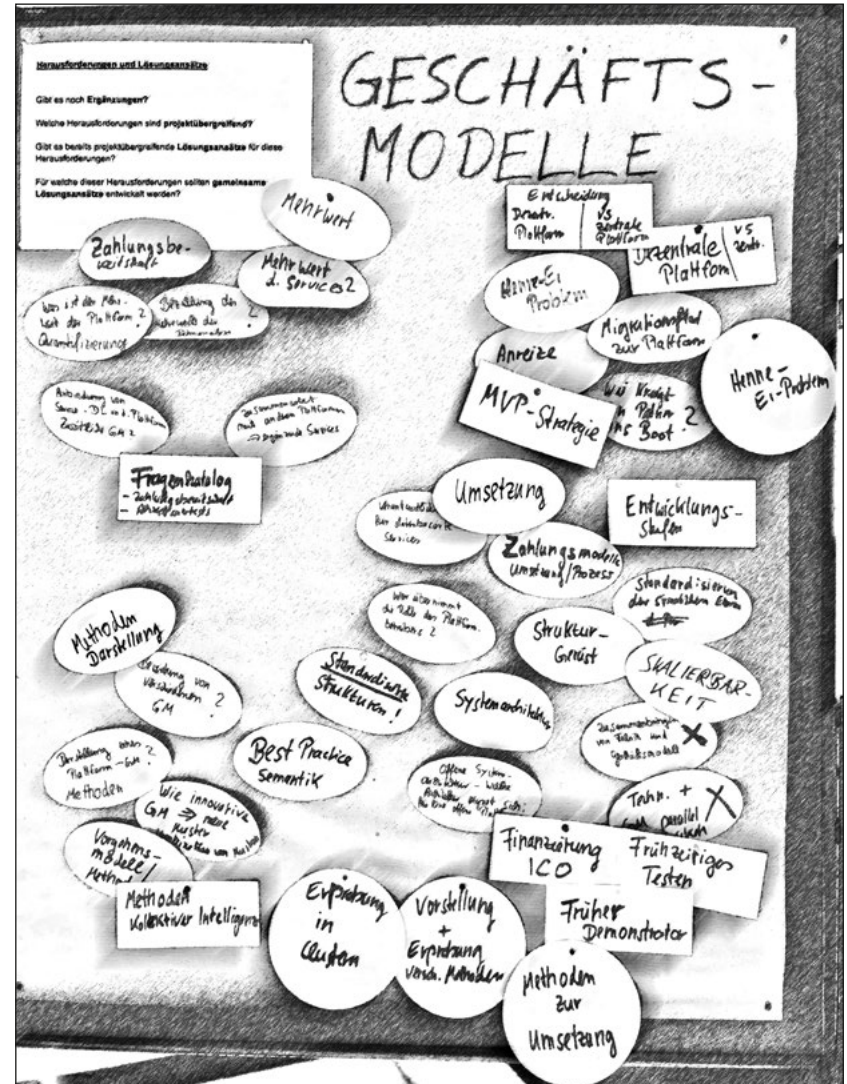 Herausforderungen und Lösungsansätze
Gibt es noch Ergänzungen?
Welche Herausforderungen sind projektübergreifend?
Gibt es bereits projektübergreifende Lösungsansätze für diese
Herausforderungen?
Für welche dieser Herausforderungen sollten gemeinsame
Lösungsansätze entwickelt werden?
GESCHÄFTS-
MODELLE
Mehrwert
Zahlungsbe-
reitschaft
Mehrwert
d. Services?
Was ist der Mehr-
wert der Plattform?
Quantifizierung
Bezahlung des
Mehrwerts der
Entscheidung
Dezentr. | vs zentrale
Plattform | Plattform
Dezentrale | vs
Plattform | zentr.
Henne-Ei
Problem
Migrationspfad
zur Plattform
Anreize
Henne-
Ei-Problem
MVP-Strategie
Wie kriegt
Boot?
Anbindung von
Plattform
GM?
Zusammenarbeit
mit anderen Plattformen
⇒ ergänzende Services
Fragenkatalog
- Zahlungsbereitschaft
Umsetzung
Services
Entwicklungs-
stufen
Zahlungsmodelle
Umsetzung/Prozess
Standardisieren
der
Wer übernimmt
die Rolle des Plattform-
betreibers?
Struktur-
Gerüst
SKALIERBAR-
KEIT
Methoden
Darstellung
Standardisierte
Strukturen!
Systemarchitektur
von
GM?
Zusammenbringen
von Technik und
Geschäftsmodell
Best Practice
Semantik
Darstellung eines
Plattform-GM?
Methoden
Offene System-
architektur - welche
Wie innovative
GM ⇒ neue
Muster
Techn. +
GM parallel
Vorgehens-
modell/
Finanzierung
ICO
Frühzeitiges
Testen
Methoden
Kollektiver Intelligenz
Erprobung
in
Clustern
Vorstellung
+
Erprobung
versch. Methoden
Früher
Demonstrator
Methoden
zur
Umsetzung